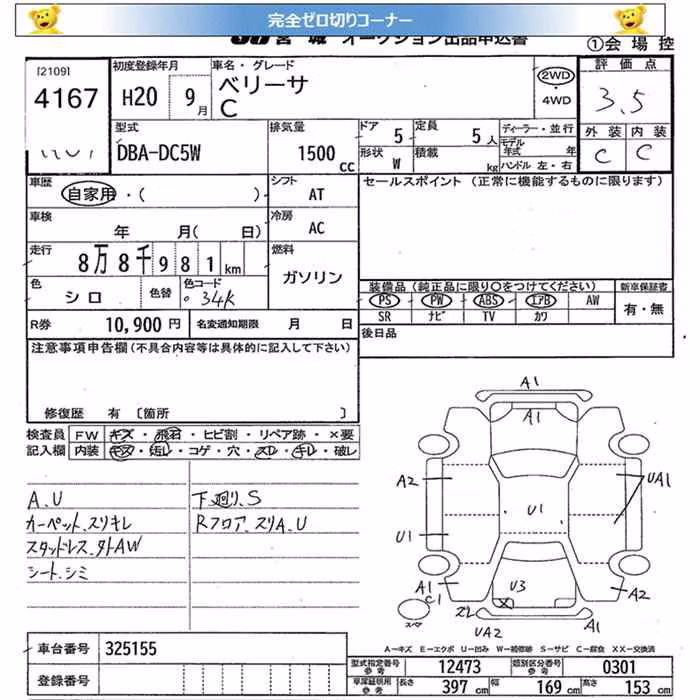 完全ゼロ切りコーナー
JU宮城 オークション出品申込書
①会場控
[2109]
4167
初度登録年月
H20 9月
車名・グレード
ベリーサ
C
2WD
・
4WD
評価点
3.5
外装 内装
C C
型式
DBA-DC5W
排気量
1500 cc
ドア 5
定員 5人
形状 W
積載 kg
ディーラー・並行
モデル年式 年
ハンドル 左・右
車歴
自家用・( )
シフト AT
車検
年 月( 日)
冷房 AC
走行
8万8千981km
燃料
ガソリン
色
シロ
色替
色コード
34K
R券 10,900円
名変通知期限 月 日
セールスポイント (正常に機能するものに限ります)
装備品(純正品に限り○をつけてください)
PS PW ABS エアB AW
SR ナビ TV カワ
新車保証書
有・無
後日品
注意事項申告欄(不具合内容等は具体的に記入して下さい)
修復歴 有 〔箇所 〕
検査員記入欄
FW キズ・飛石・ヒビ割・リペア跡・×要
内装 キズ・汚レ・コゲ・穴・スレ・キレ・破レ
A.U
カーペット.スリキレ
スタッドレス.外AW
シート.シミ
下廻り.S
Rフロア.スリA.U
A1
A1
A2
UA1
U1
U1
A1
C1
U3
A2
スペア
UA2
A1
A-キズ E-エクボ U-凹み W-補修跡 S-サビ C-腐食 XX-交換済
車台番号 325155
登録番号
型式指定番号参考 12473
類別区分番号参考 0301
車庫証明用参考 長さ 397cm 幅 169cm 高さ 153cm